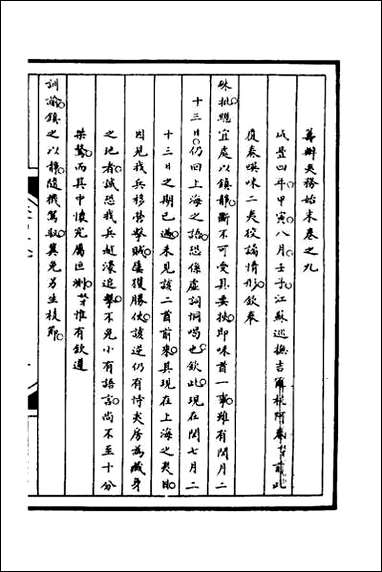 籌辦夷務始末卷之九
咸豐四年甲寅八月壬子江蘇巡撫吉爾杭阿奏竊前此
復奏㗆咪二夷狡譎情形欽奉
硃批總宜處以鎮靜斷不可受其要挾即咪酋一事雖有閏月二
十三日仍回上海之語恐係虛詞恫喝也欽此現在閏七月二
十三日之期已過未見該二酋前來其現在上海之夷目
因見我兵移營擊賊屢獲勝仗該逆仍有恃夷房為藏身
之地者誠恐我兵越濠追擊不免小有語言尚不至十分
桀驁而其中懷究屬叵測等惟有欽遵
訓諭鎮之以靜隨機駕馭冀免另生枝節